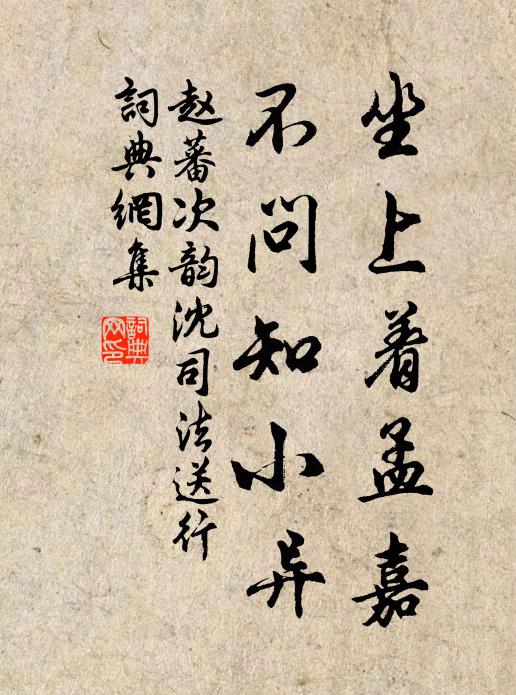 坐上着孟嘉
不问知小异
赵蕃次韵沈司法送行
词典网集
詞典网印